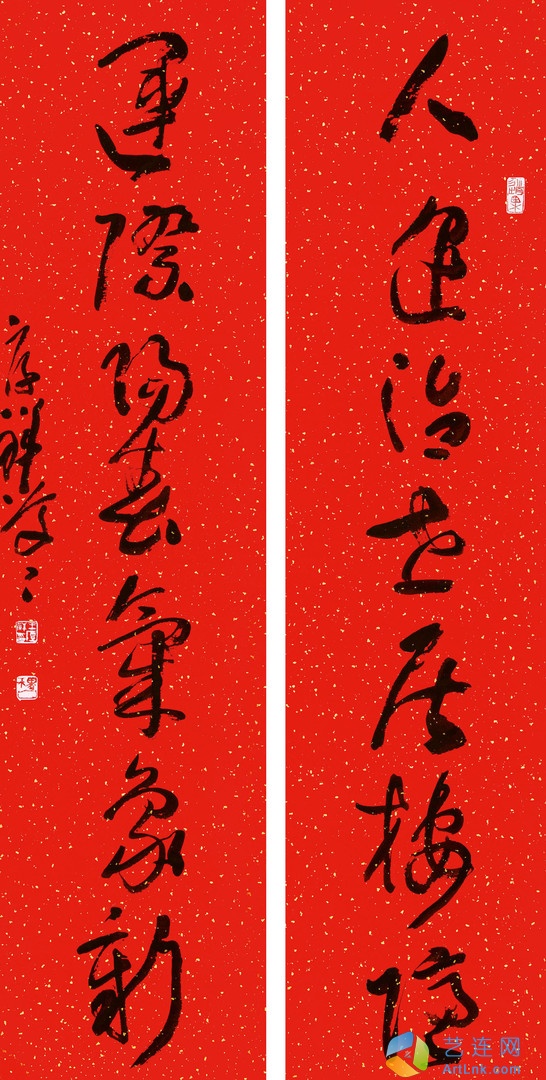 人逢治世居棲穩
運際陽春氣象新
厚祥
艺连网
ArtLnk.com